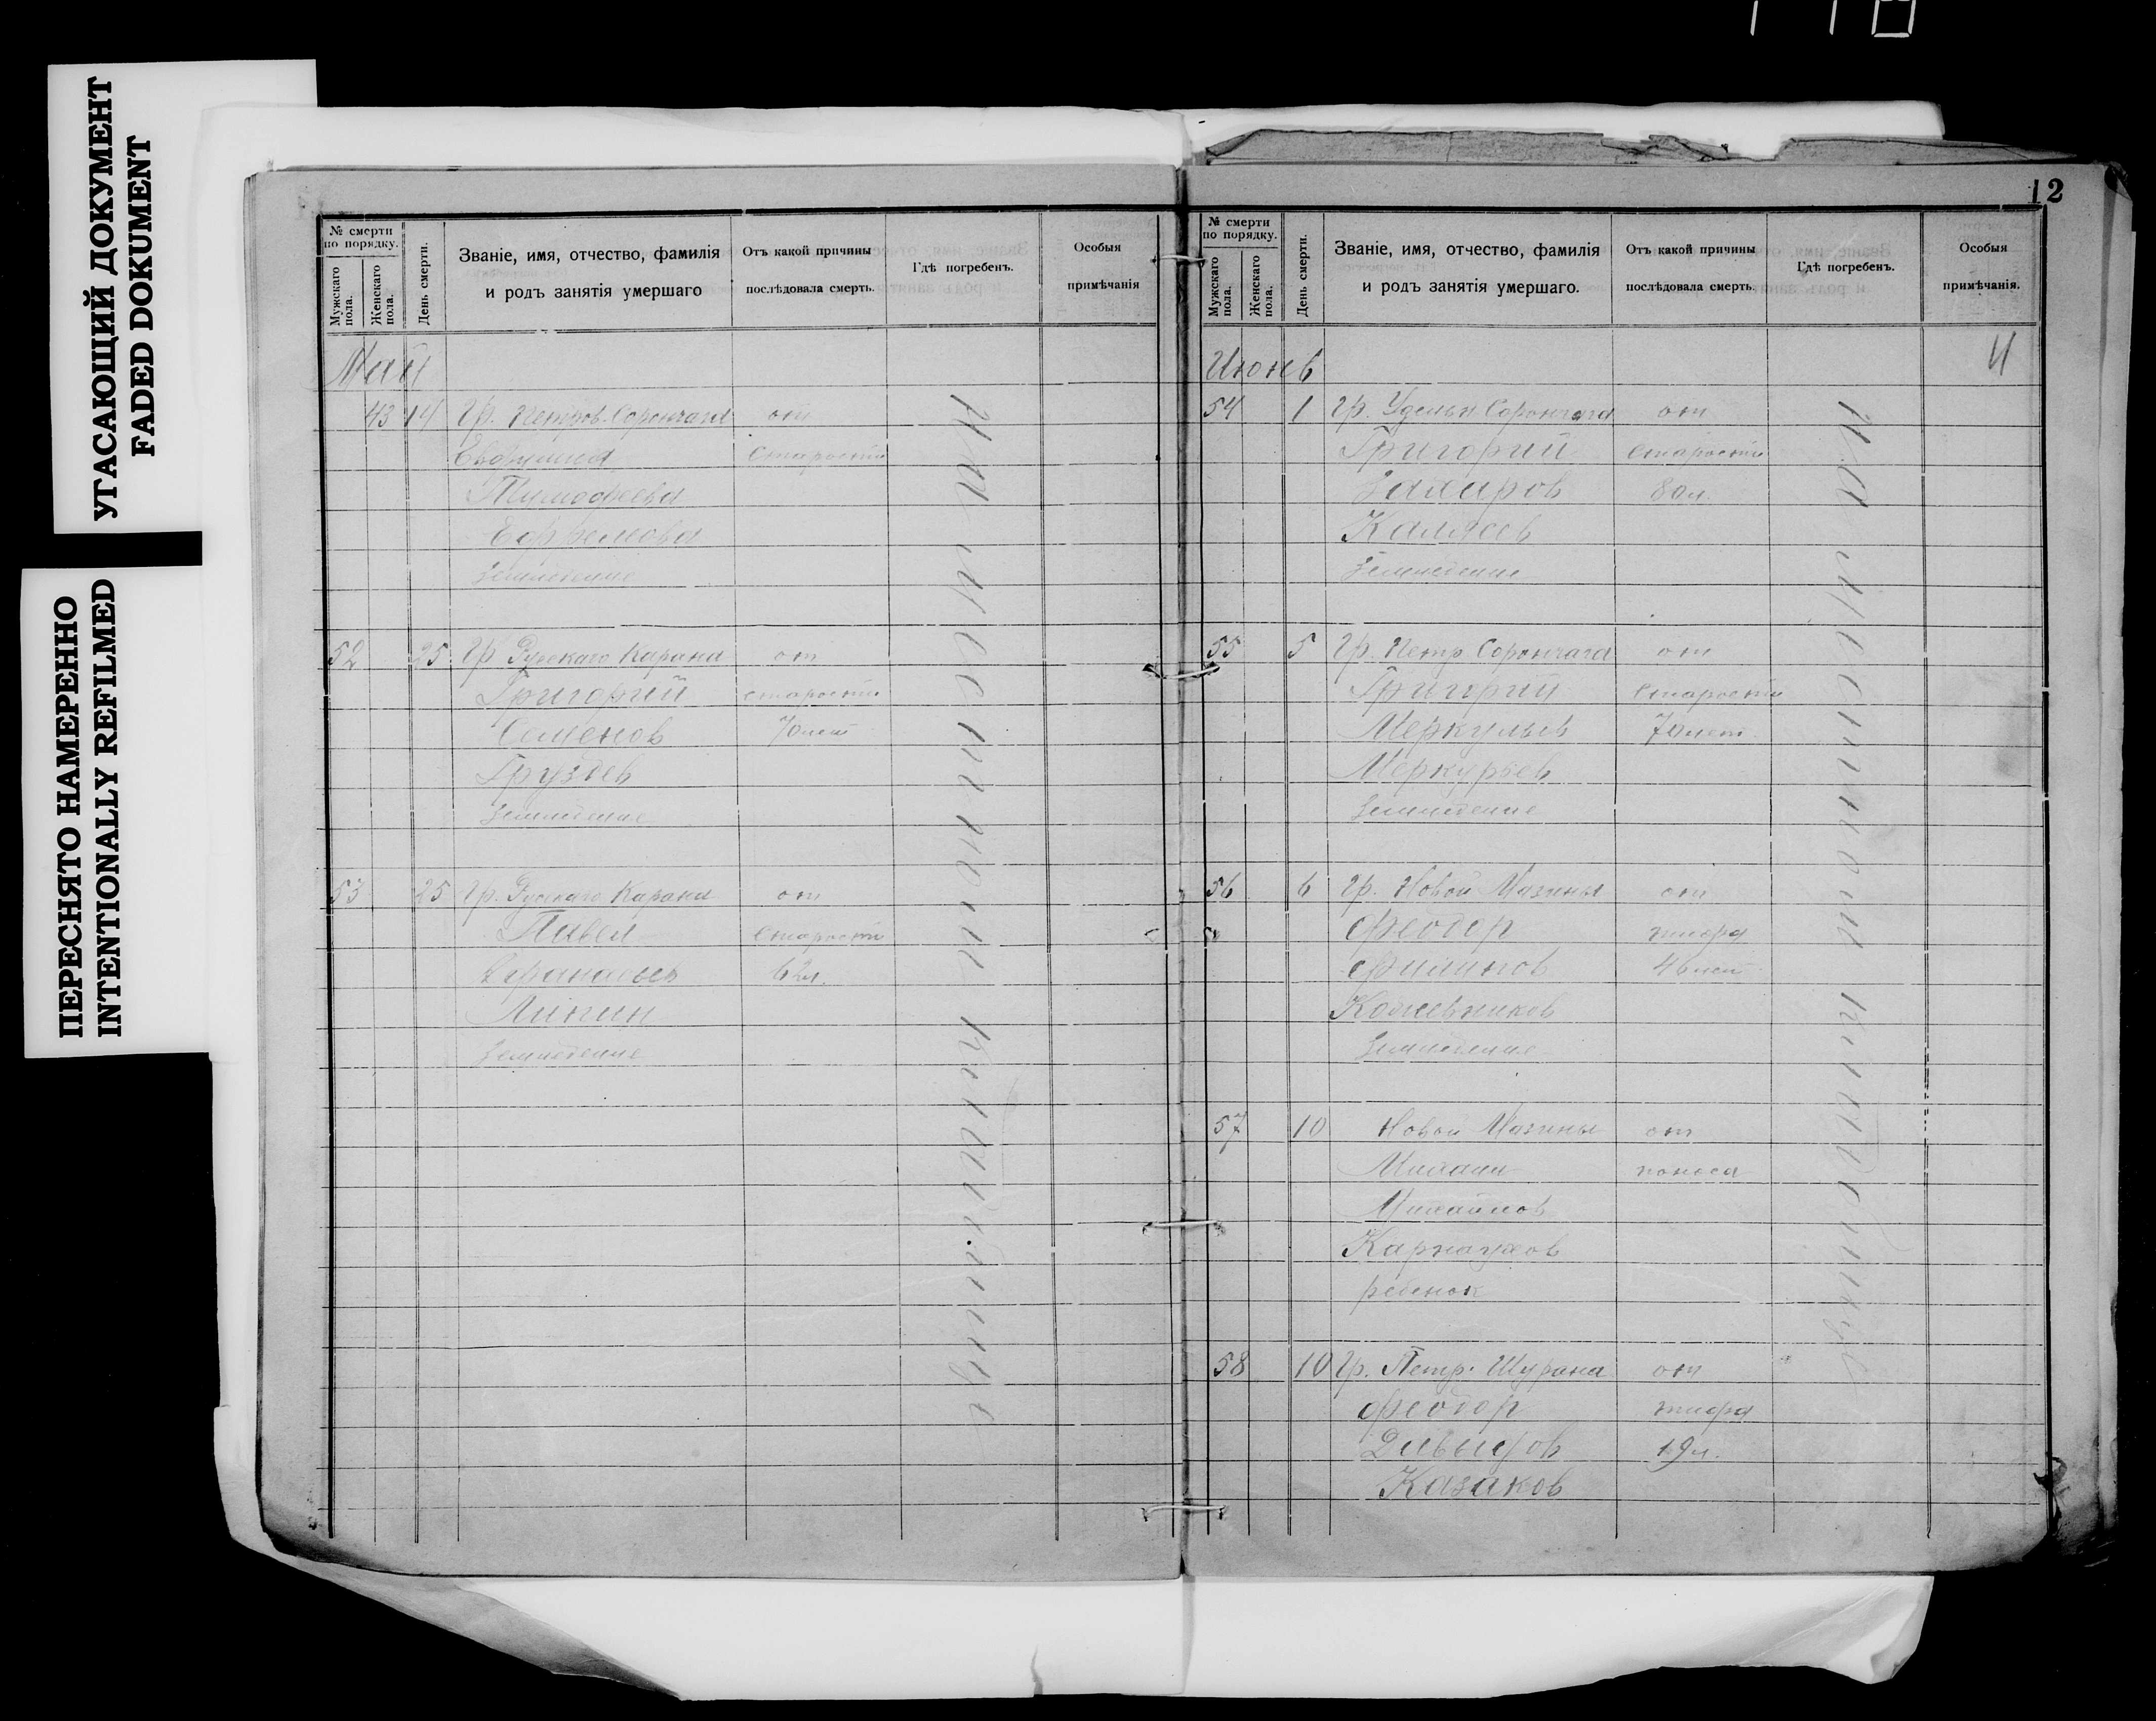 УГАСАЮЩИЙ ДОКУМЕНТ
FADED DOKUMENT
ПЕРЕСНЯТО НАМЕРЕННО
INTENTIONALLY REFILMED
№ смерти по порядку.
Мужскаго пола.
Женскаго пола.
День смерти.
Званіе, имя, отчество, фамилія
и родъ занятія умершаго
Отъ какой причины
послѣдовала смерть.
Гдѣ погребенъ.
Особыя
примѣчанія
Май
43 14 Гр. Петров. от
Старости
Тимофеева
Ефремова
Земледелие
52 25 Гр. Русскаго Карана от
Григорий старости
Семенов 70 лет
Груздев
Земледелие
53 25 Гр. Русскаго Карана от
Павел Старости
62 л.
Земледелие
На местном кладбище
12
№ смерти по порядку.
Мужскаго пола.
Женскаго пола.
День смерти.
Званіе, имя, отчество, фамилія
и родъ занятія умершаго.
Отъ какой причины
послѣдовала смерть.
Гдѣ погребенъ.
Особыя
примѣчанія.
Июнь
54 1 Гр. от
Григорий Старости
Захаров 80 л.
Земледелие
55 5 Гр. Петр. от
Григорий Старости
Меркульев 70 лет
Меркурьев
Земледелие
56 6 Гр. Новой от
Феодор тифа
Филипов 46 лет
Кожевников
Земледелие
57 10 Новой от
Михаил поноса
Михайлов
Карнаухов
ребенок
58 10 Гр. Петр. Шурана от
Феодор тифа
Давыдов 19 л.
Казаков
На местном кладбище